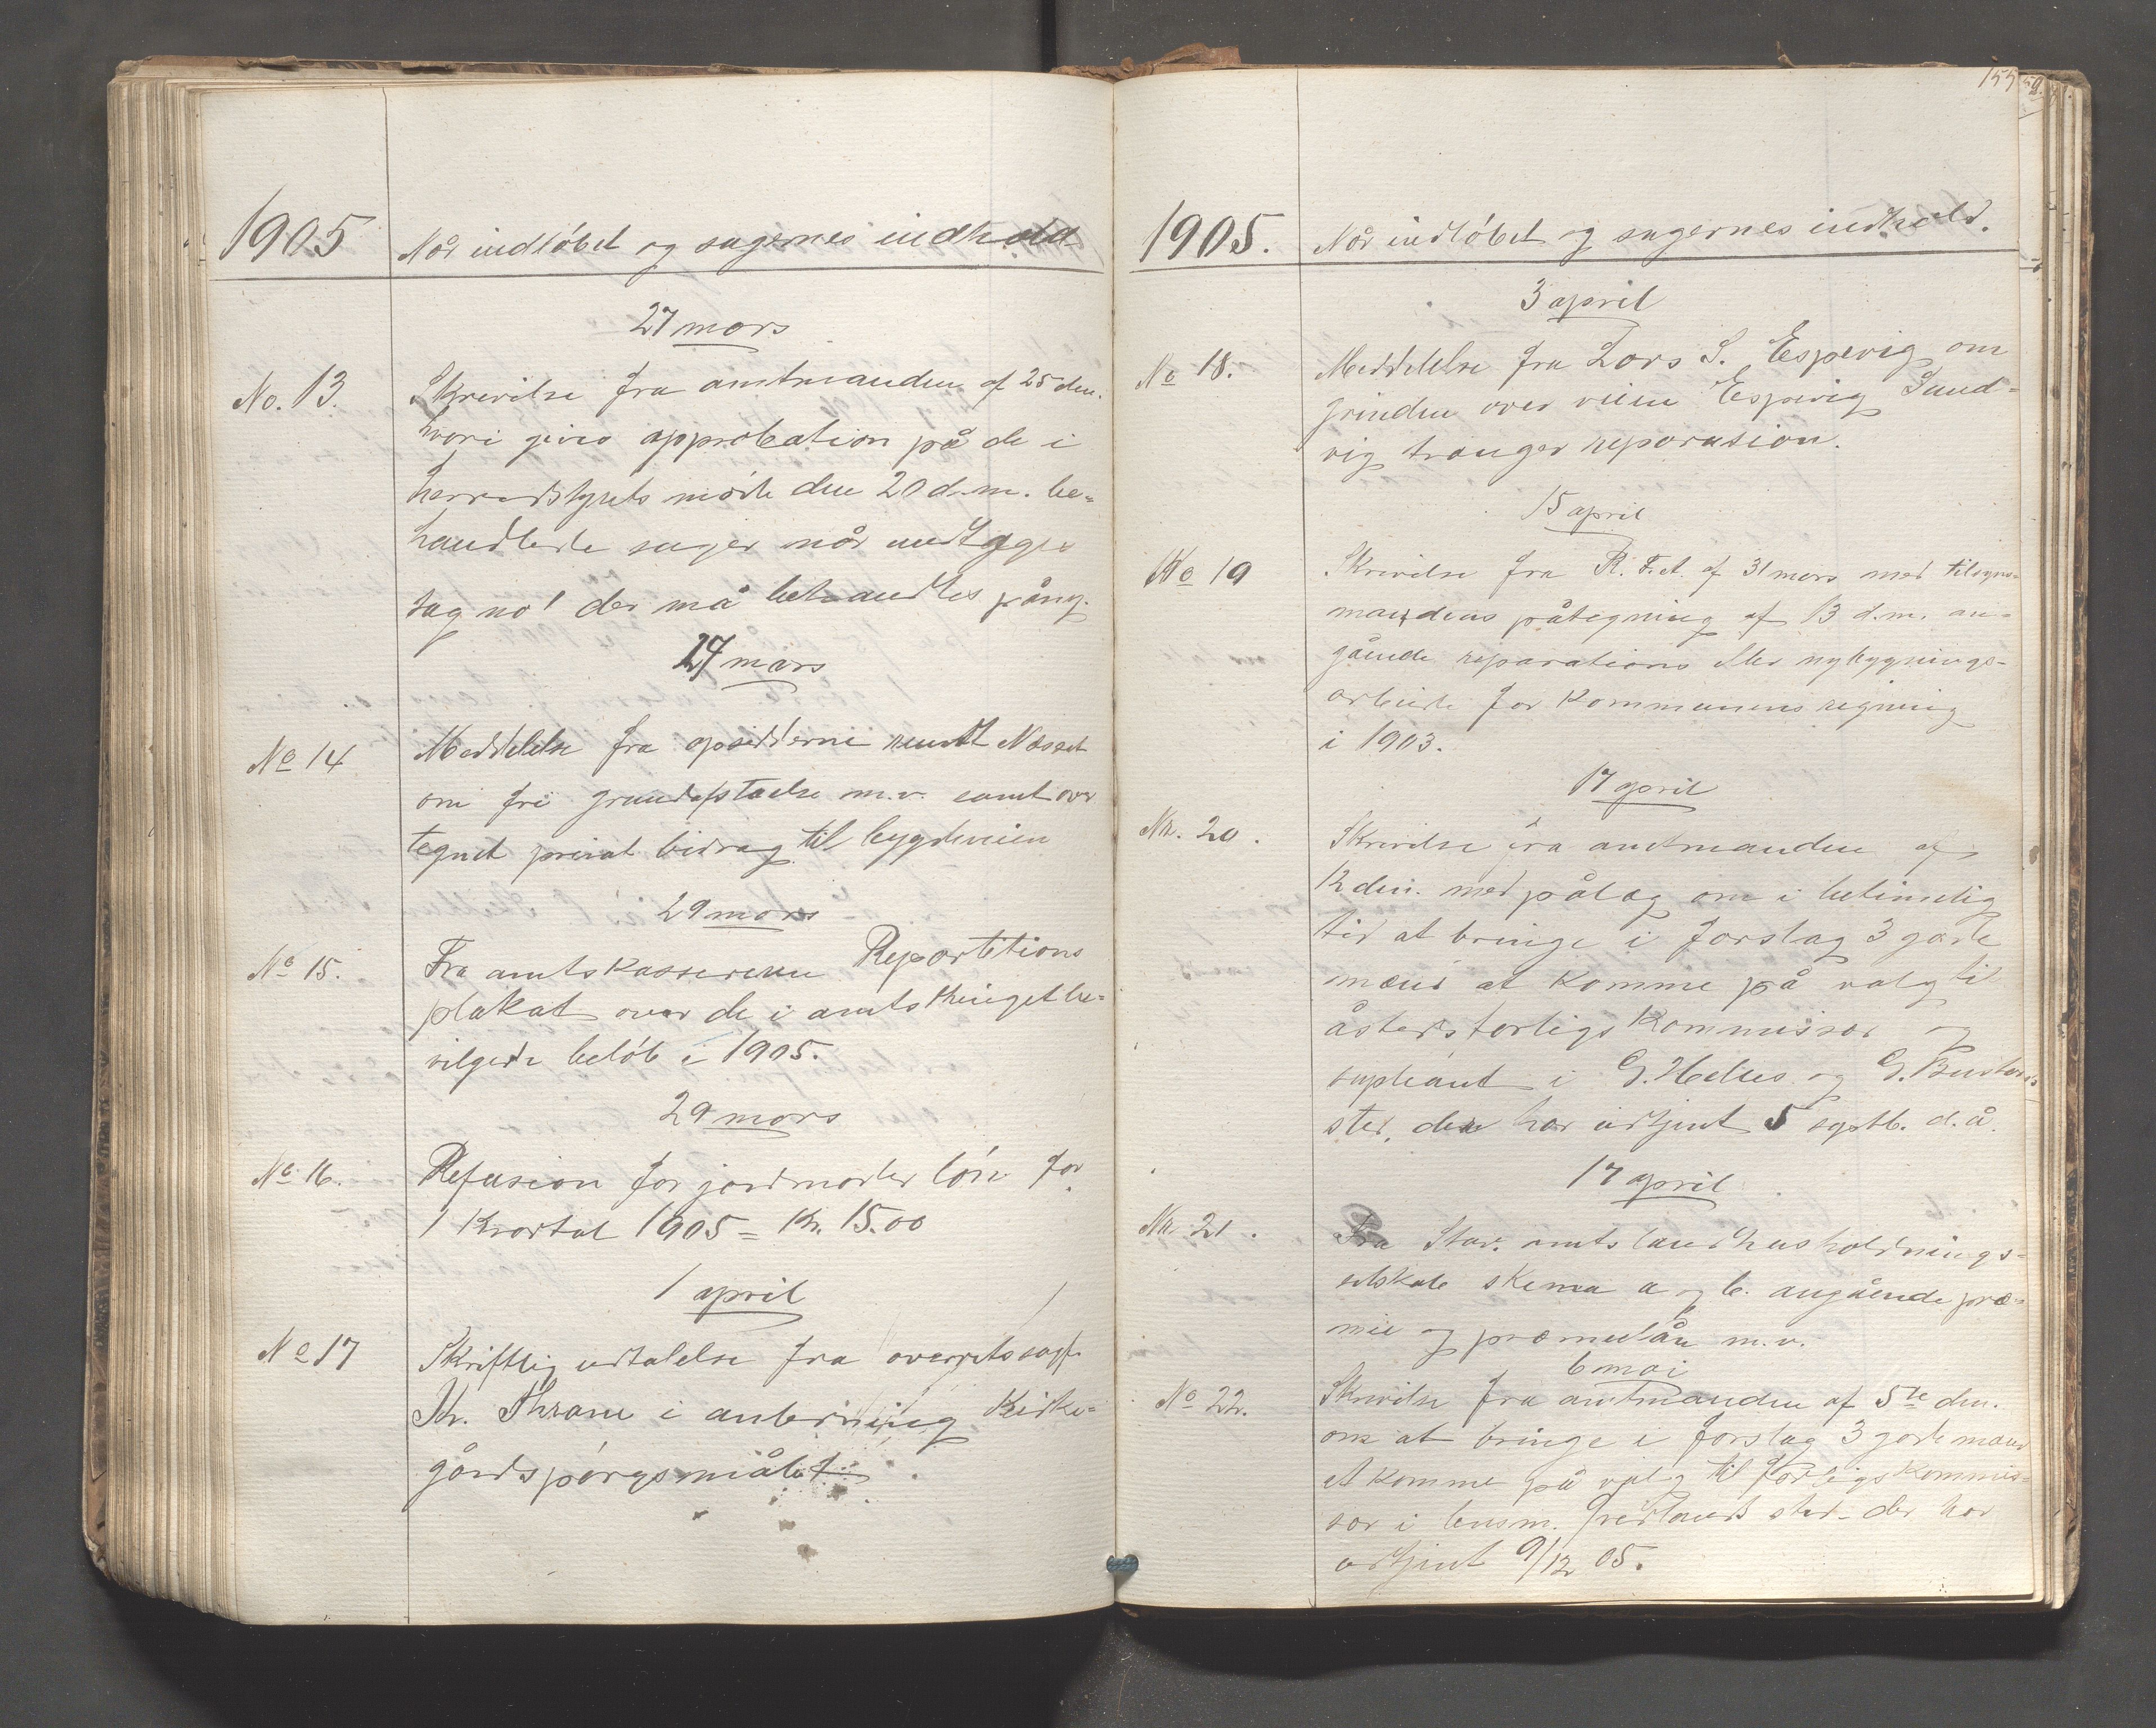 1905
Når indløbet og sagernes indhold
27 mars
No. 13.
Skrivelse fra amtmanden af 25 den.
hvori gives approbation på de i
herredstyrets møde den 20 d.m. be-
handlede sager når undtages
sag no 1 der må behandles påny.
27 mars
No 14
Meddelelse fra opsidderne rundt Næsset
om fri grundafståelse m.v. samt over
tegnet privat bidrag til bygdeveien
29 mars
No 15.
Fra amtskassereren Repartitions
plakat over de i amtsthinget be-
vilgede beløb i 1905.
29 mars
No 16.
Refusion for jordmoder løn for
1 Kvartal 1905 = Kr. 15.00
1 april
No 17
Skriftlig udtalelse fra overretssagf.
Kr. Thrane i anledning Kirke-
gårdspørgsmålet
155
1905.
Når indløbet og sagernes indhold.
3 april
No 18.
Meddelelse fra Lars S. Espevig om
grinden over veien Espevig Sund-
vig tranger reparasion.
15 april
No 19
Skrivelse fra R. F. A. af 31 mars med tilsyns-
mandens påtegning af 13 d.m. an-
gående reparations eller nybygnings-
arbeide for Kommunens regning
i 1903.
17 april
Nr. 20.
Skrivelse fra amtmanden af
12 den. med pålæg om i betimelig
tid at bringe i forslag 3 gode
mænd at komme på valg til
åstedsforligskommissær og
supleant i G. Helles og G.
sted, der har udtjent 5 septb. d.å.
17 april
Nr. 21.
Fra Stav. amts landhusholdnings-
selskab skema a og b. angående præ-
mie og præmielån m.v.
6 mai
No 22.
Skrivelse fra amtmanden af 5te den.
om at bringe i forslag 3 gode mænd
at komme på valg til forligskommis-
sær i lensm. sted - der har
udtjent 9/12 05.